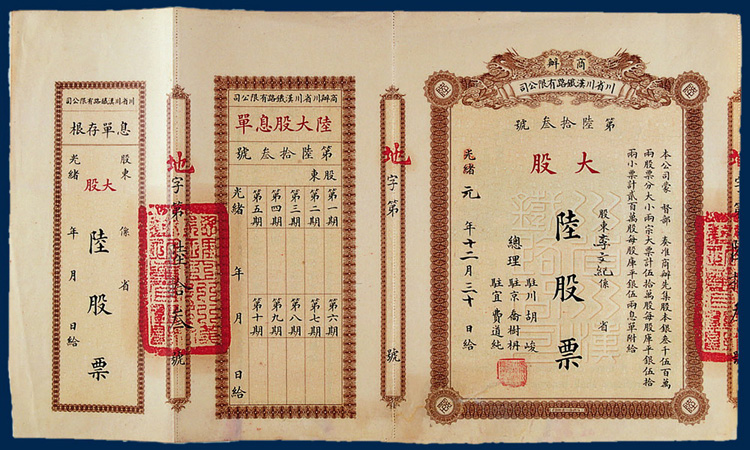 商辦
川省川漢鐵路有限公司
第陸拾叁號
本公司蒙 督部 奏准商辦先集股本銀叁千五百萬
兩股票分大小兩宗大票計伍拾萬股每股庫平銀伍拾
兩小票計貳百萬股每股庫平銀伍兩息單附給
大股
股東李文紀係 省
陸股票
總理
駐川胡峻
駐京喬樹枏
駐宜費道純
光緒元年十二月三十日給
地字第 號
商辦川省川漢鐵路有限公司
陸大股息單
第陸拾叁號
股東
第一期
第二期
第三期
第四期
第五期
第六期
第七期
第八期
第九期
第十期
光緒 年 月 日給
地字第陸拾叁號
川省川漢鐵路有限公司
息單存根
股東 係 省
大股
陸股票
光緒 年 月 日給